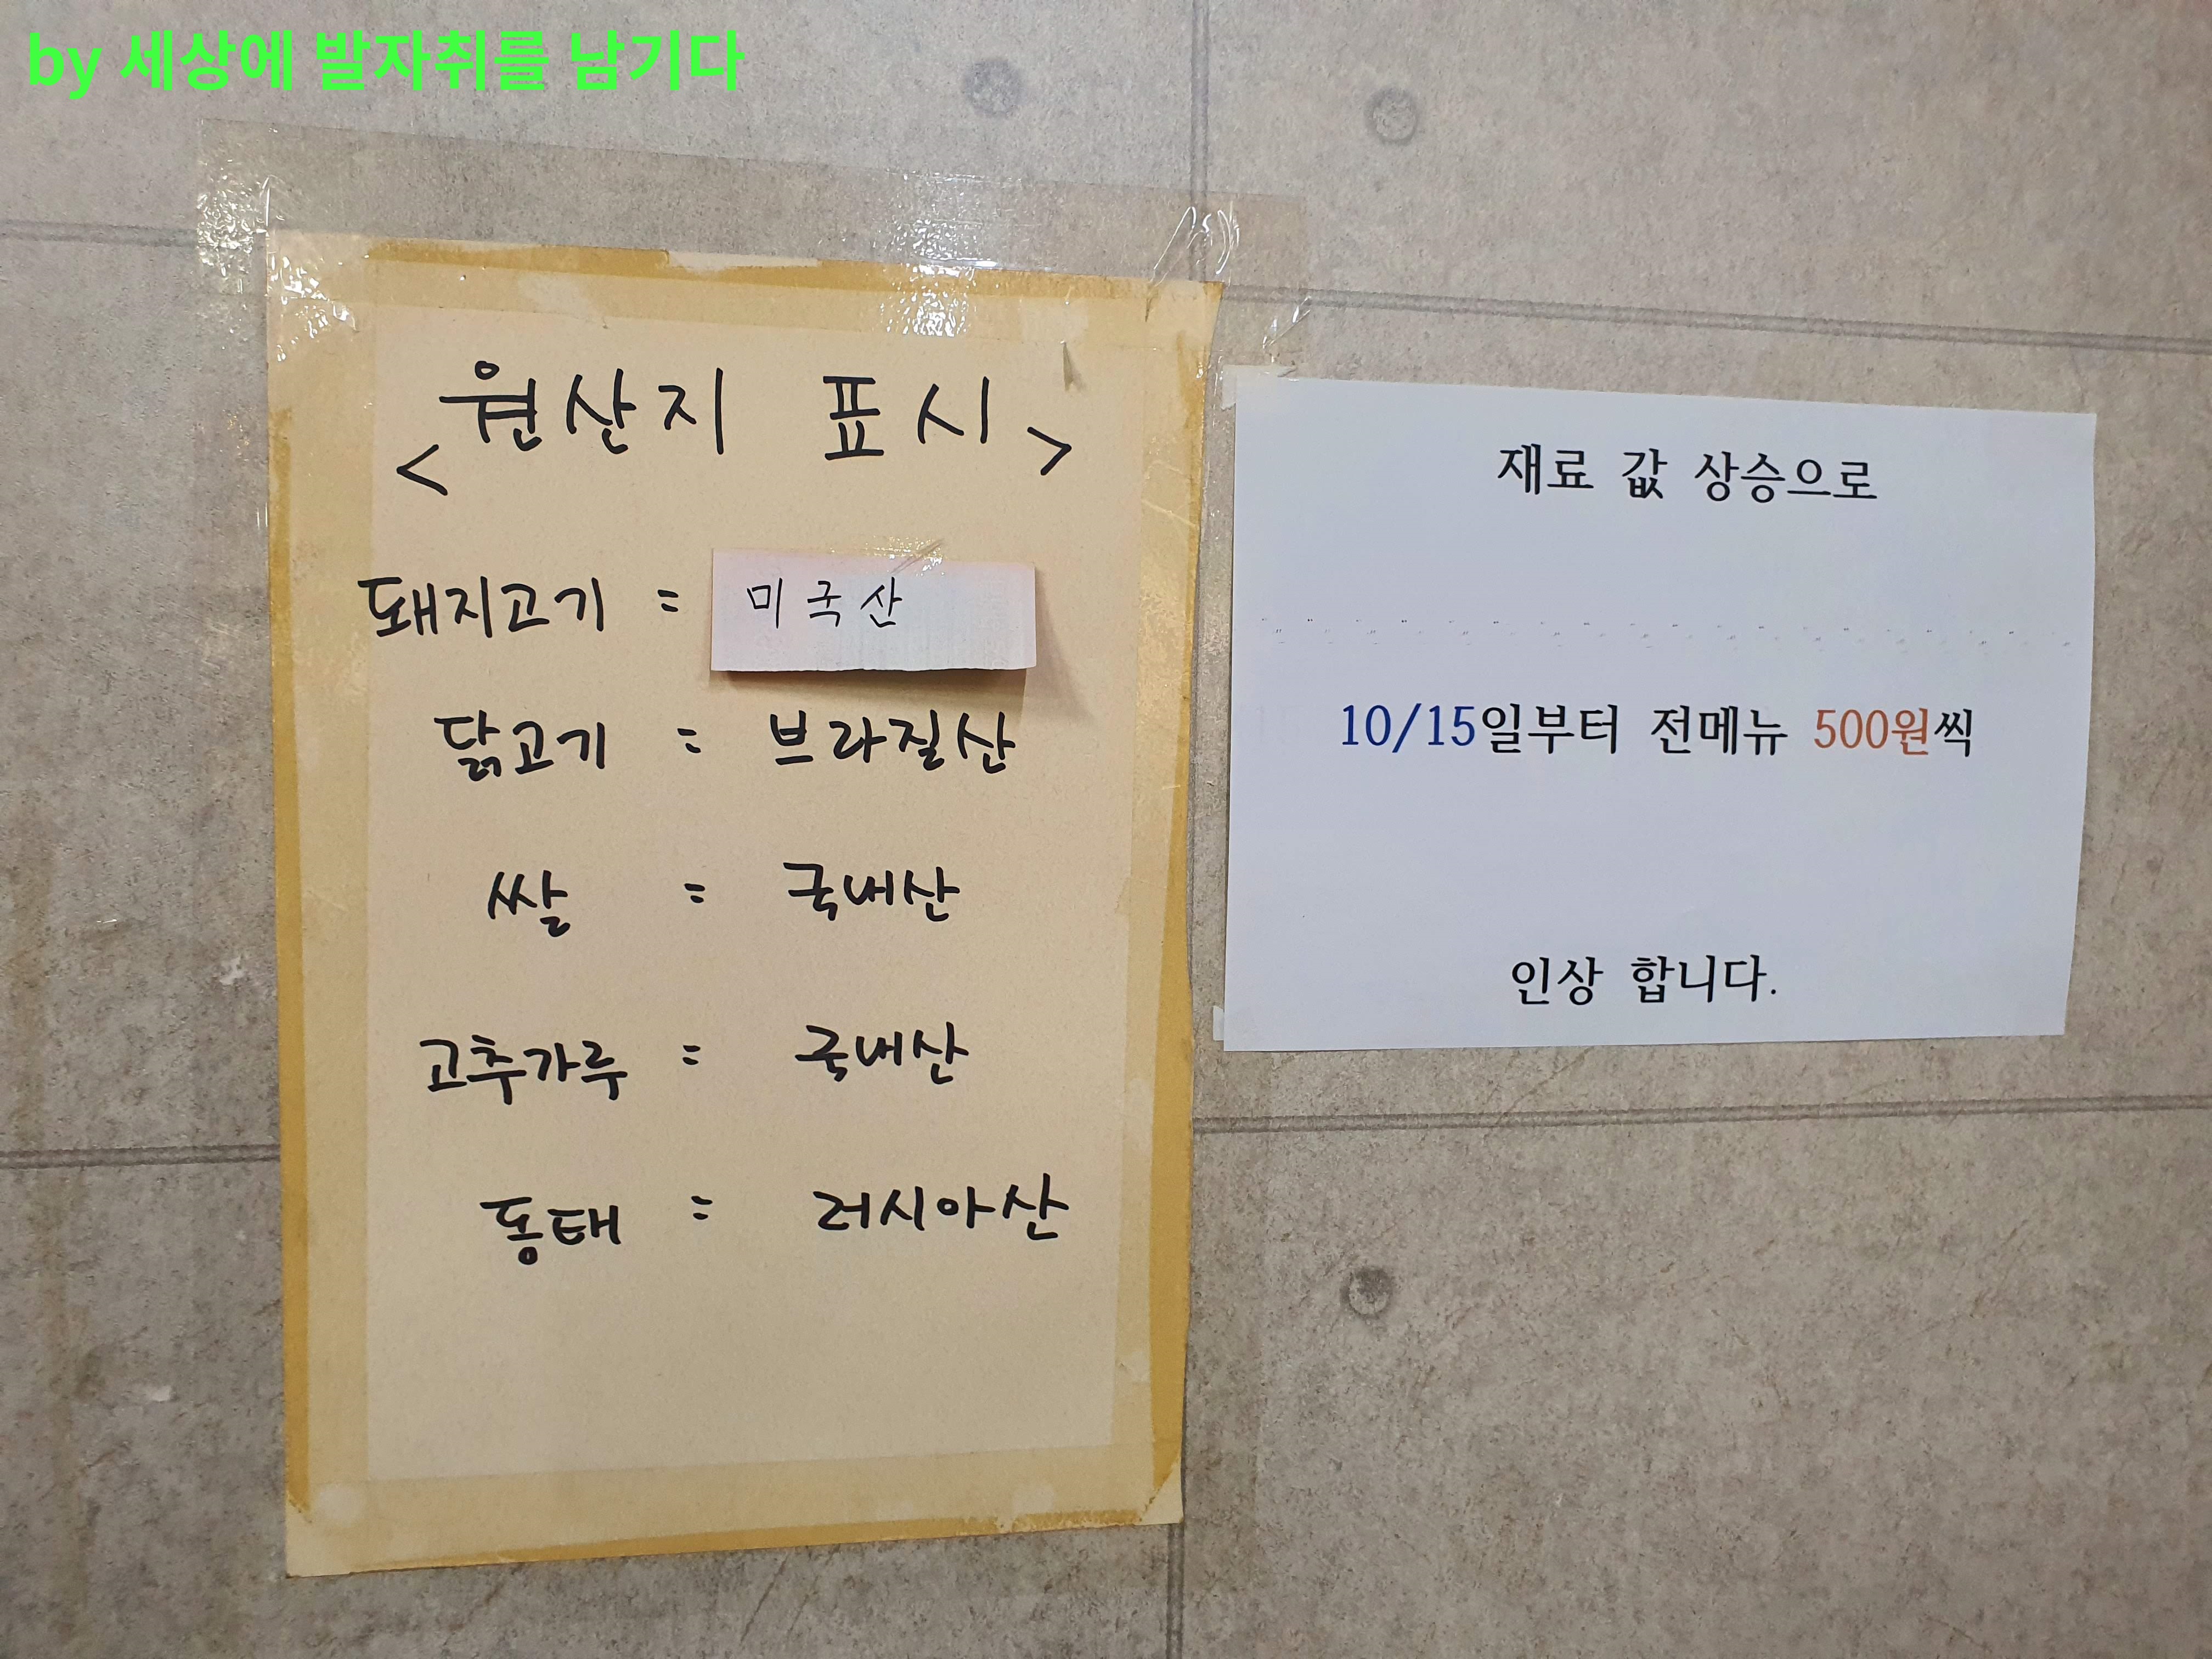 by 세상에 발자취를 남기다
<원산지 표시>
돼지고기 = 미국산
닭고기 = 브라질산
쌀 = 국내산
고추가루 = 국내산
동태 = 러시아산
재료 값 상승으로
10/15일부터 전메뉴 500원씩
인상 합니다.